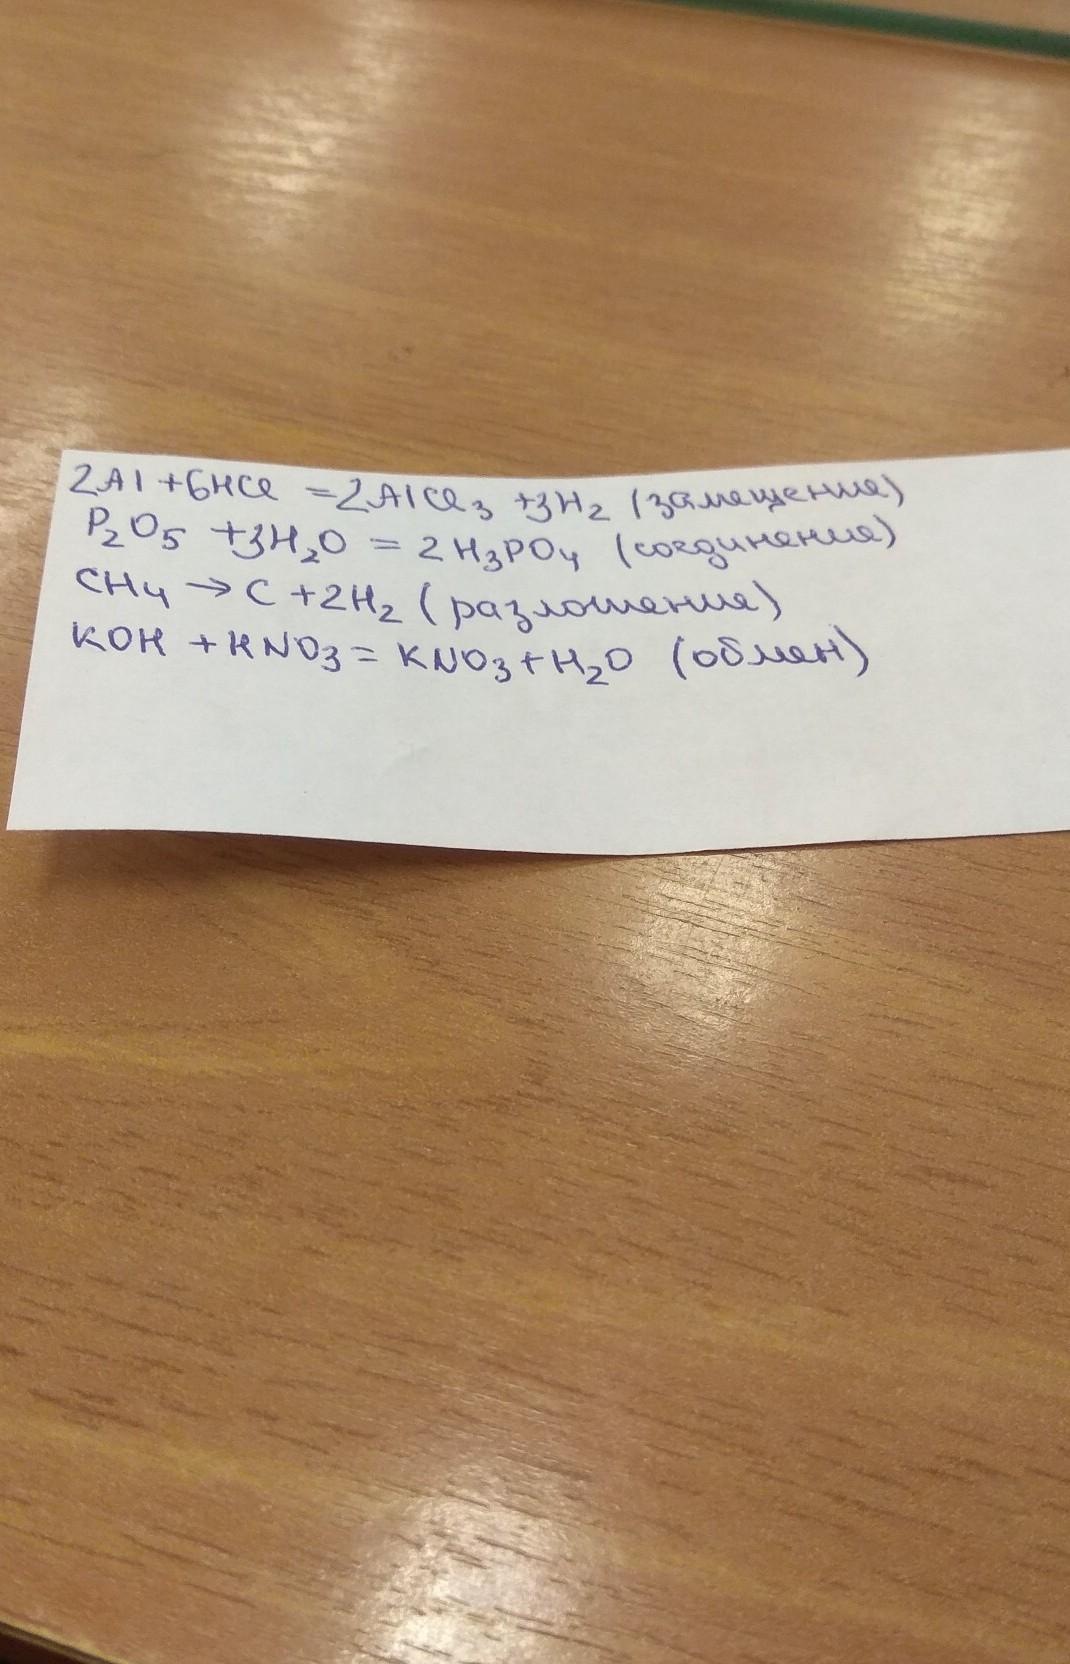 2Al + 6HCl = 2AlCl₃ + 3H₂ (замещение)
P₂O₅ + 3H₂O = 2H₃PO₄ (соединение)
CH₄ → C + 2H₂ (разложение)
KOH + HNO₃ = KNO₃ + H₂O (обмен)